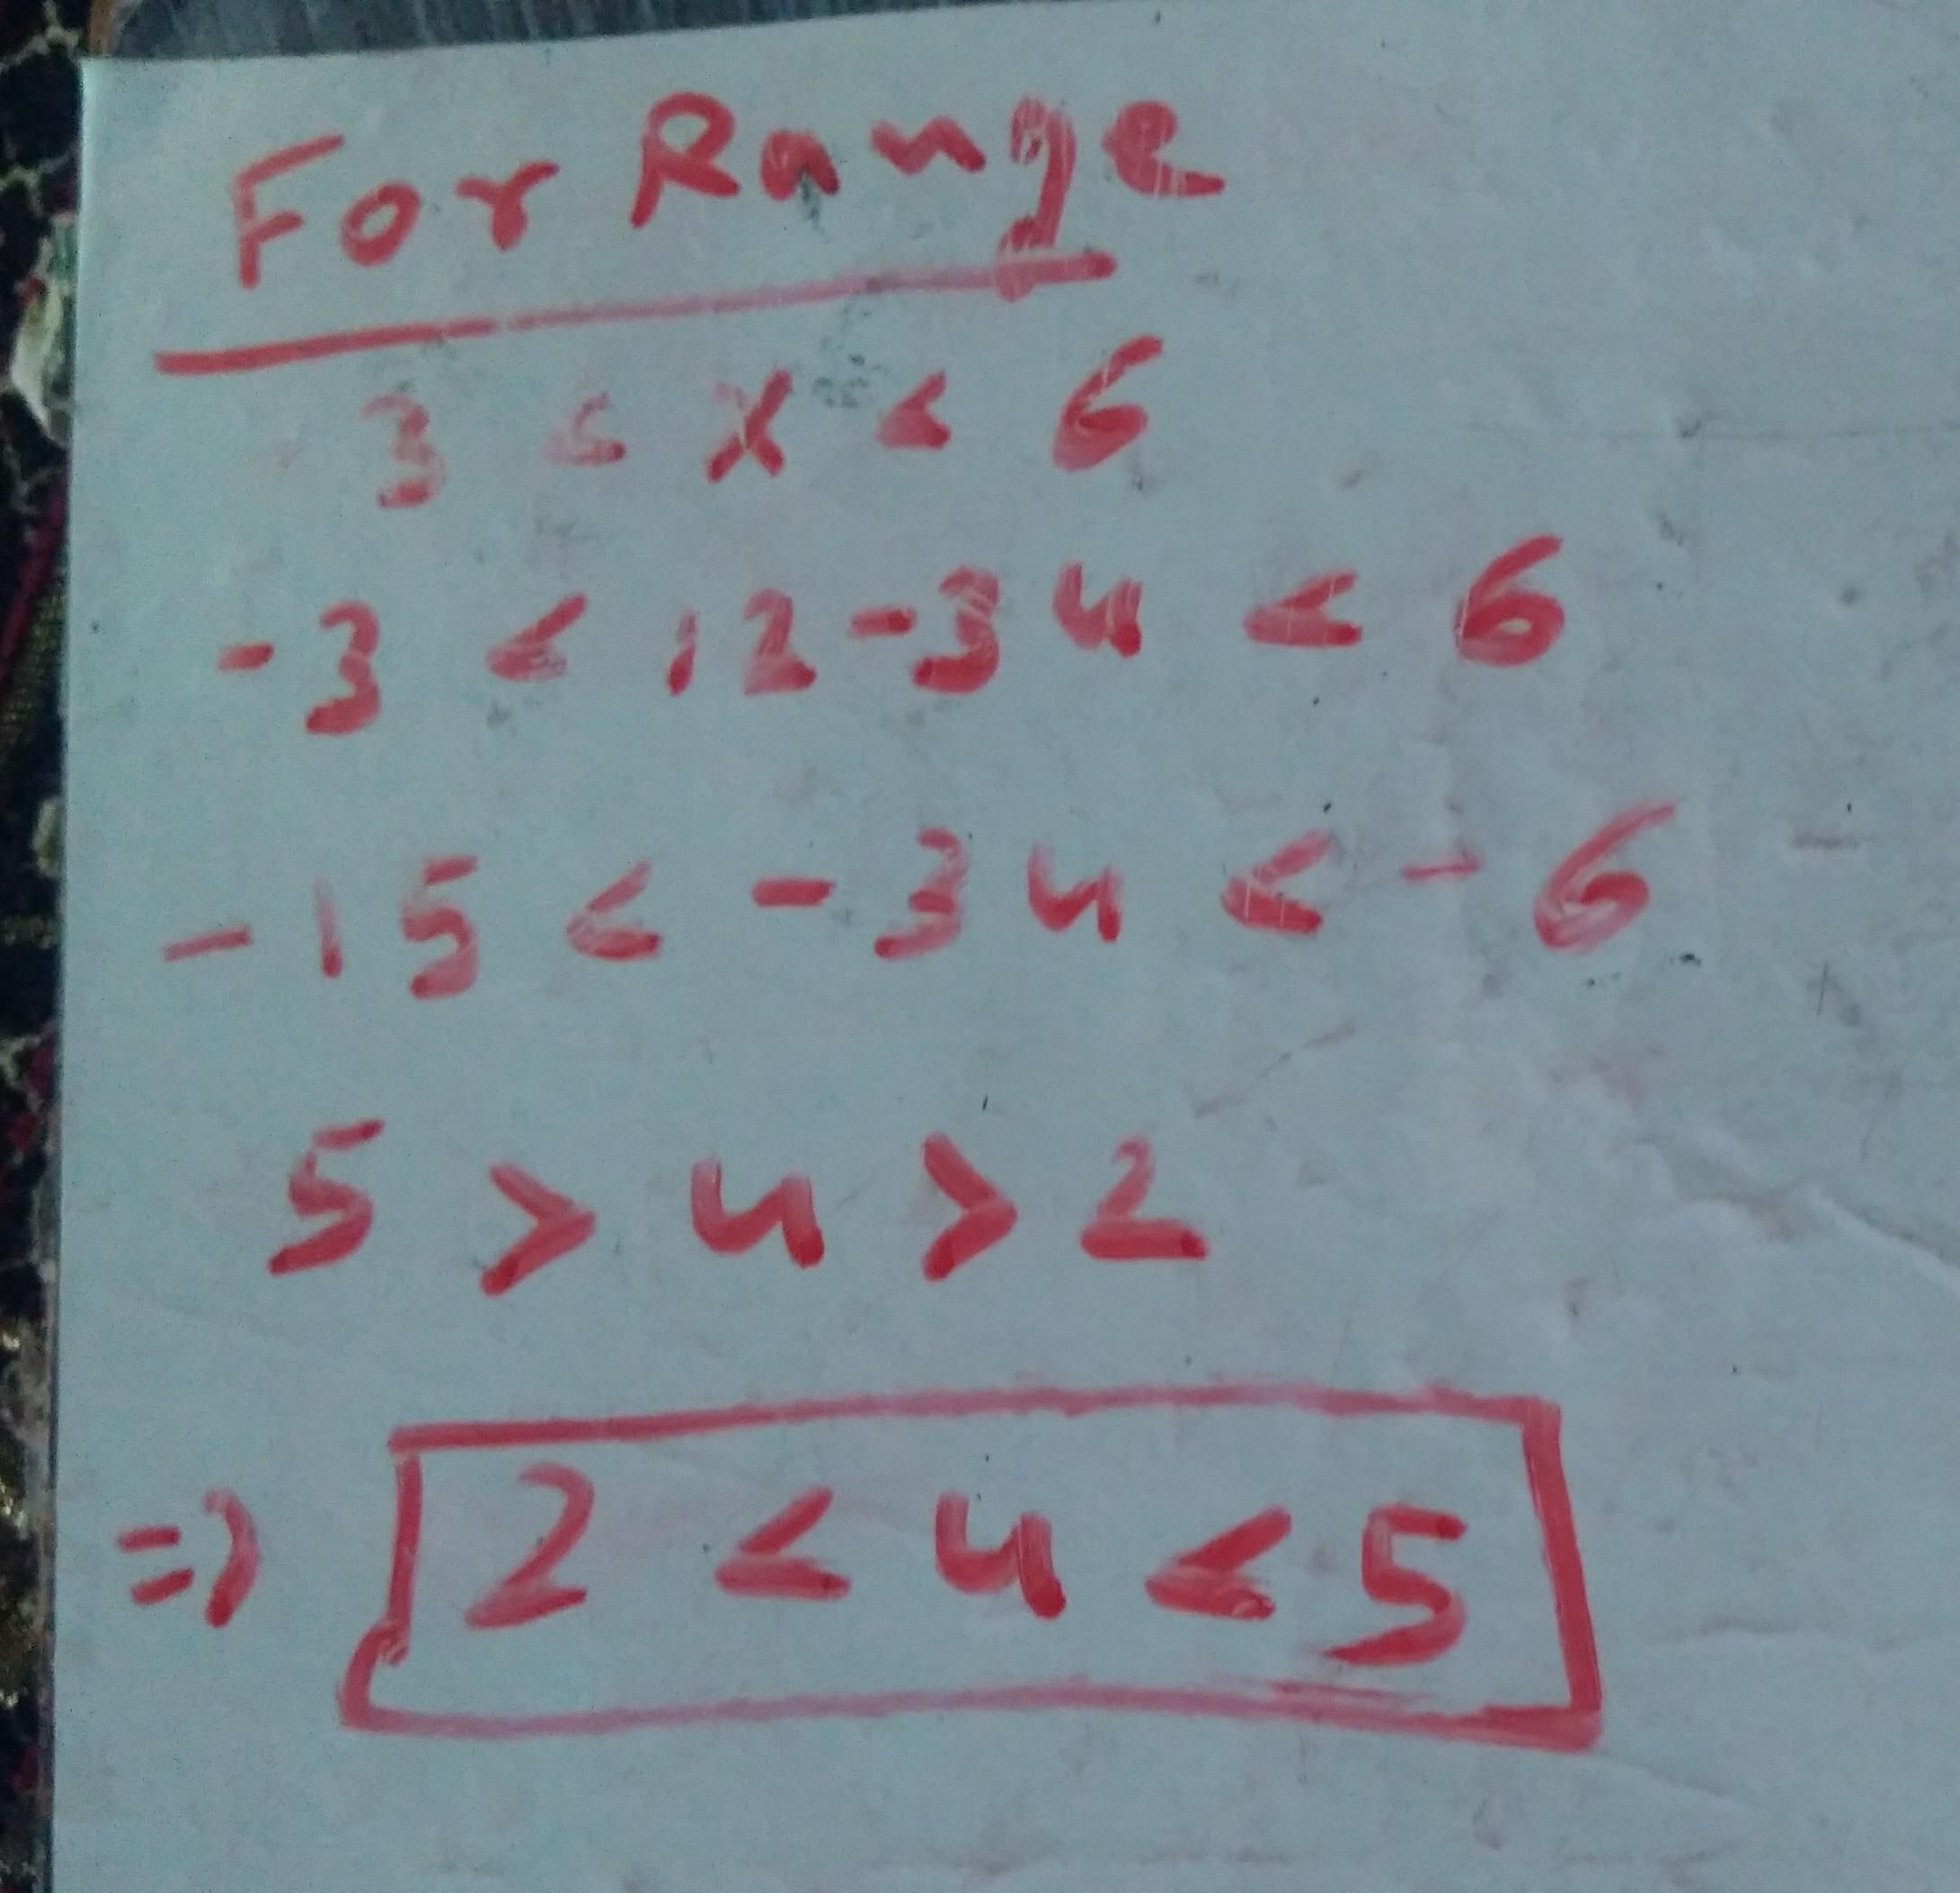 For Range
3 < x < 6
-3 < 12 - 3y < 6
-15 < -3y < -6
5 > y > 2
=> 2 < y < 5